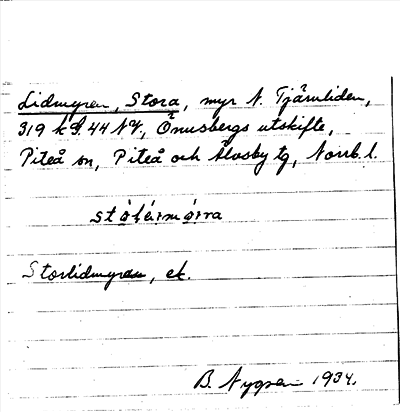 Lidmyren, Stora, myr N. Tjärnliden,
319 k S. 44 NV, Önusbergs utskifte,
Piteå sn, Piteå och Älvsby tg, Norrb. l.
Storlidmyren, ek.
B. Nygren 1934.